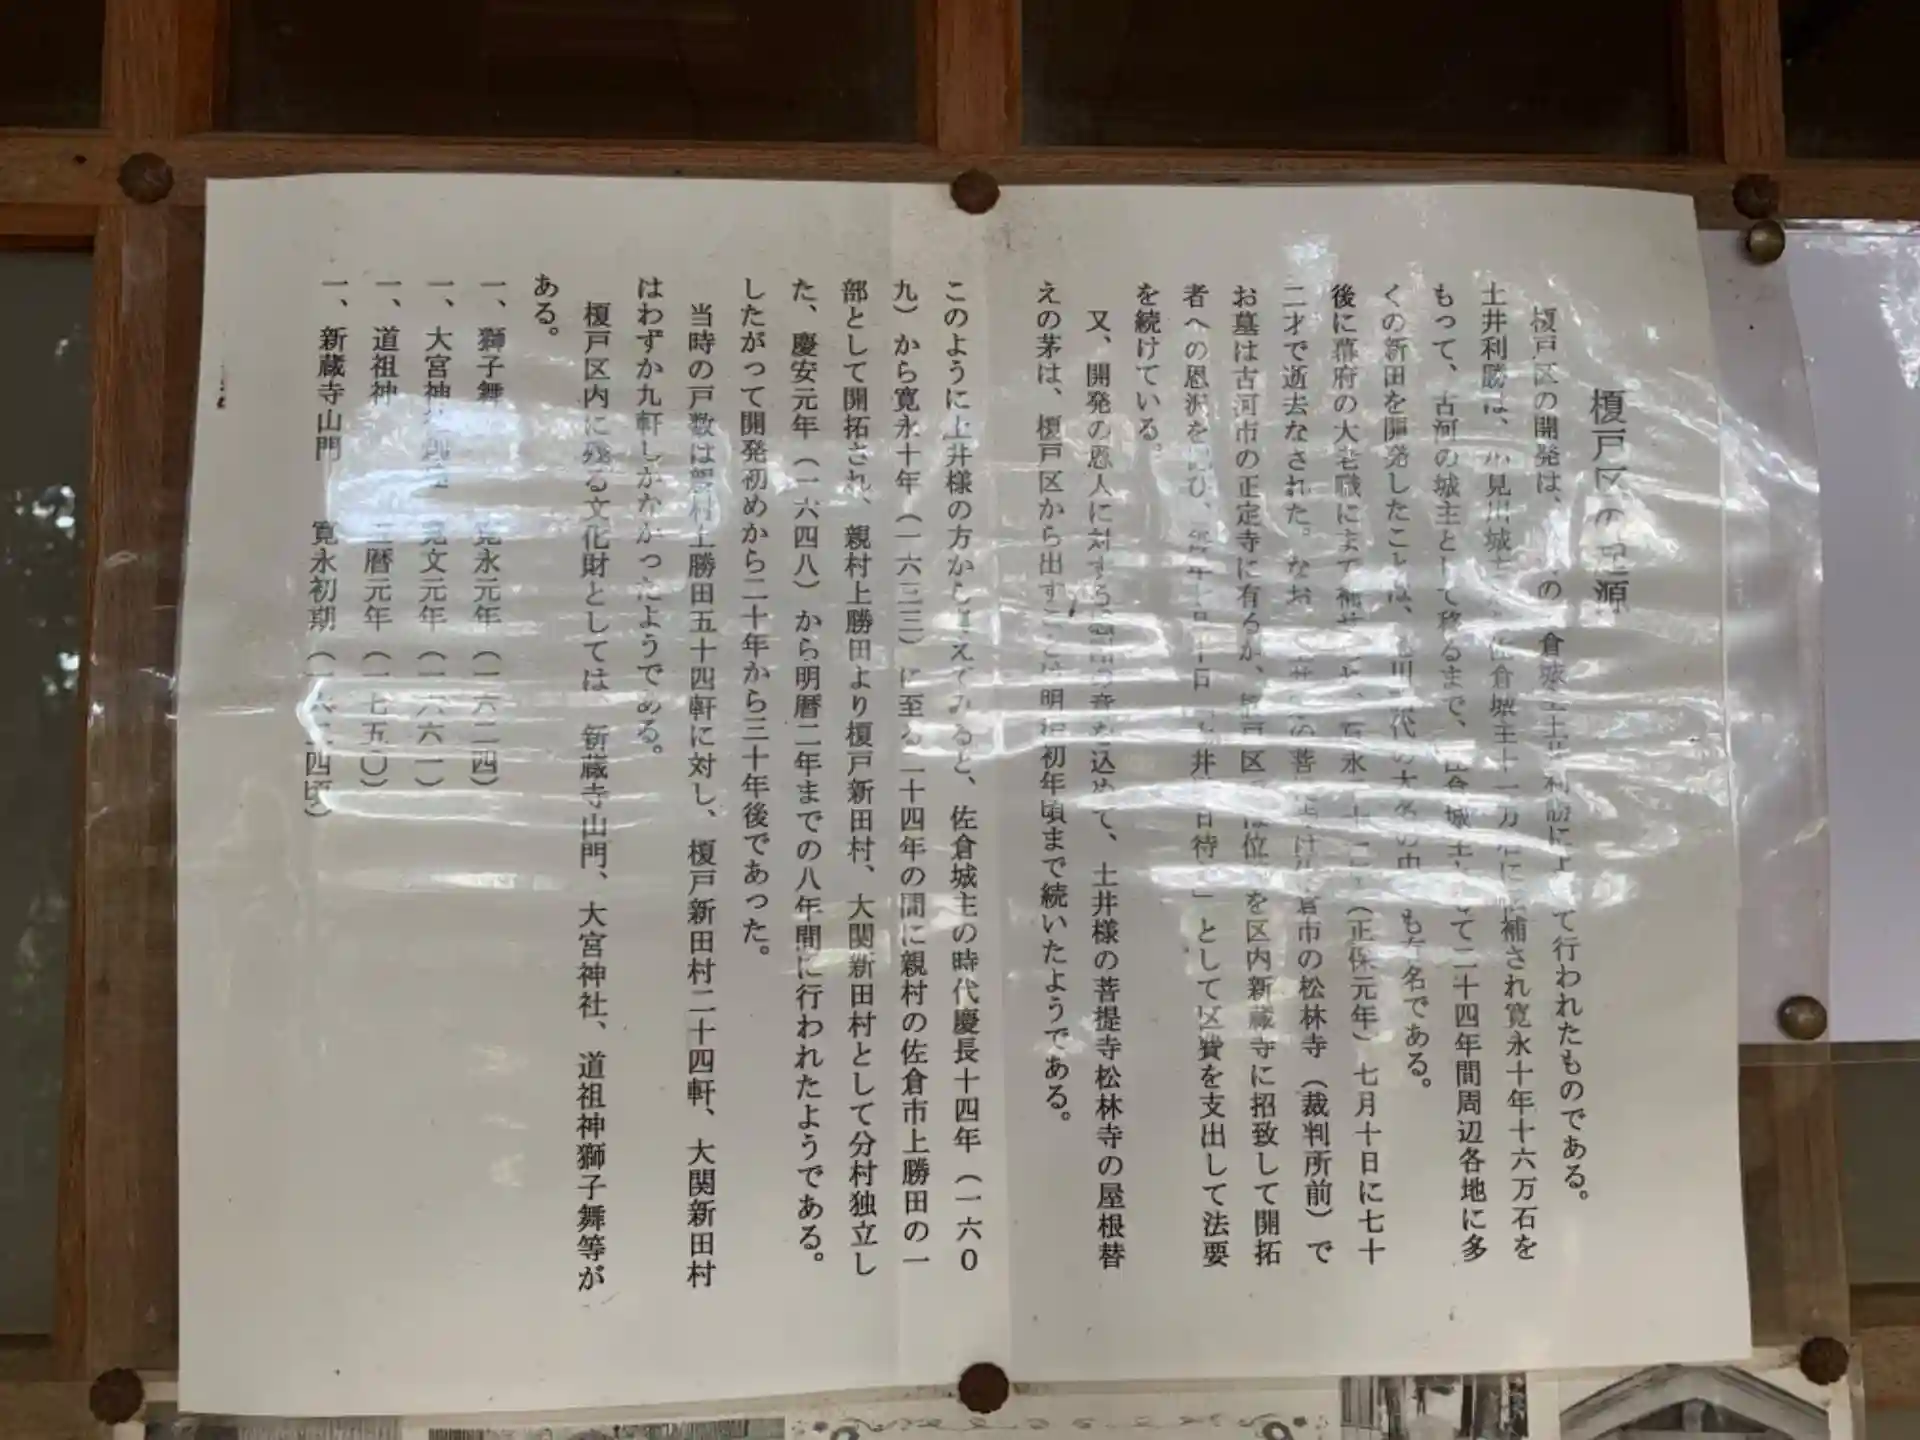 榎戸区の起源
榎戸区の開発は、の倉城主土井利勝によって行われたものである。
土井利勝は、小見川城主から佐倉城主十一万石に補され寛永十年十六万石を
もって、古河の城主として移るまで、佐倉城主として二十四年間周辺各地に多
くの新田を開発したことは、代の大名の中も有名である。
後に幕府の大老職にまで補せ、(正保元年)七月十日に七十
二才で逝去なされた。なお、菩は佐倉市の松林寺(裁判所前)で
お墓は古河市の正定寺に有るが、榎戸区では位を区内新蔵寺に招致して開拓
者への恩沢を、毎年七月十日「土井日待」として区費を支出して法要
を続けている。
又、開発の恩人に対するを込めて、土井様の菩提寺松林寺の屋根替
えの茅は、榎戸区から出すことは明治初年頃まで続いたようである。
このように土井様の方から考えてみると、佐倉城主の時代慶長十四年(一六〇
九)から寛永十年(一六三三)に至る二十四年の間に親村の佐倉市上勝田の一
部として開拓され、親村上勝田より榎戸新田村、大関新田村として分村独立し
た、慶安元年(一六四八)から明暦二年までの八年間に行われたようである。
したがって開発初めから二十年から三十年後であった。
当時の戸数は親村上勝田五十四軒に対し、榎戸新田村二十四軒、大関新田村
はわずか九軒しかなかったようである。
榎戸区内に残る文化財としては、新蔵寺山門、大宮神社、道祖神獅子舞等が
ある。
一、獅子舞 寛永元年(一六二四)
一、大宮神社 寛文元年(一六六一)
一、道祖神 暦元年(一七五〇)
一、新蔵寺山門 寛永初期(一六二四頃)